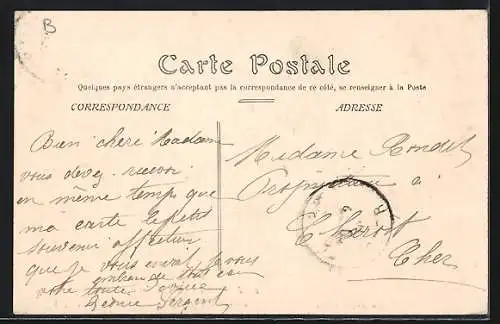 B
Carte Postale
Quelques pays étrangers n'acceptant pas la correspondance de ce côté, se renseigner à la Poste
CORRESPONDANCE
ADRESSE
Bien chère Madame
vous devez recevoir
en même temps que
ma carte le petit
souvenir affectueux
que je vous envoi. Je vous
de tout cœur
votre toute
Madame Rondet
Propriétaire à
Charost
Cher